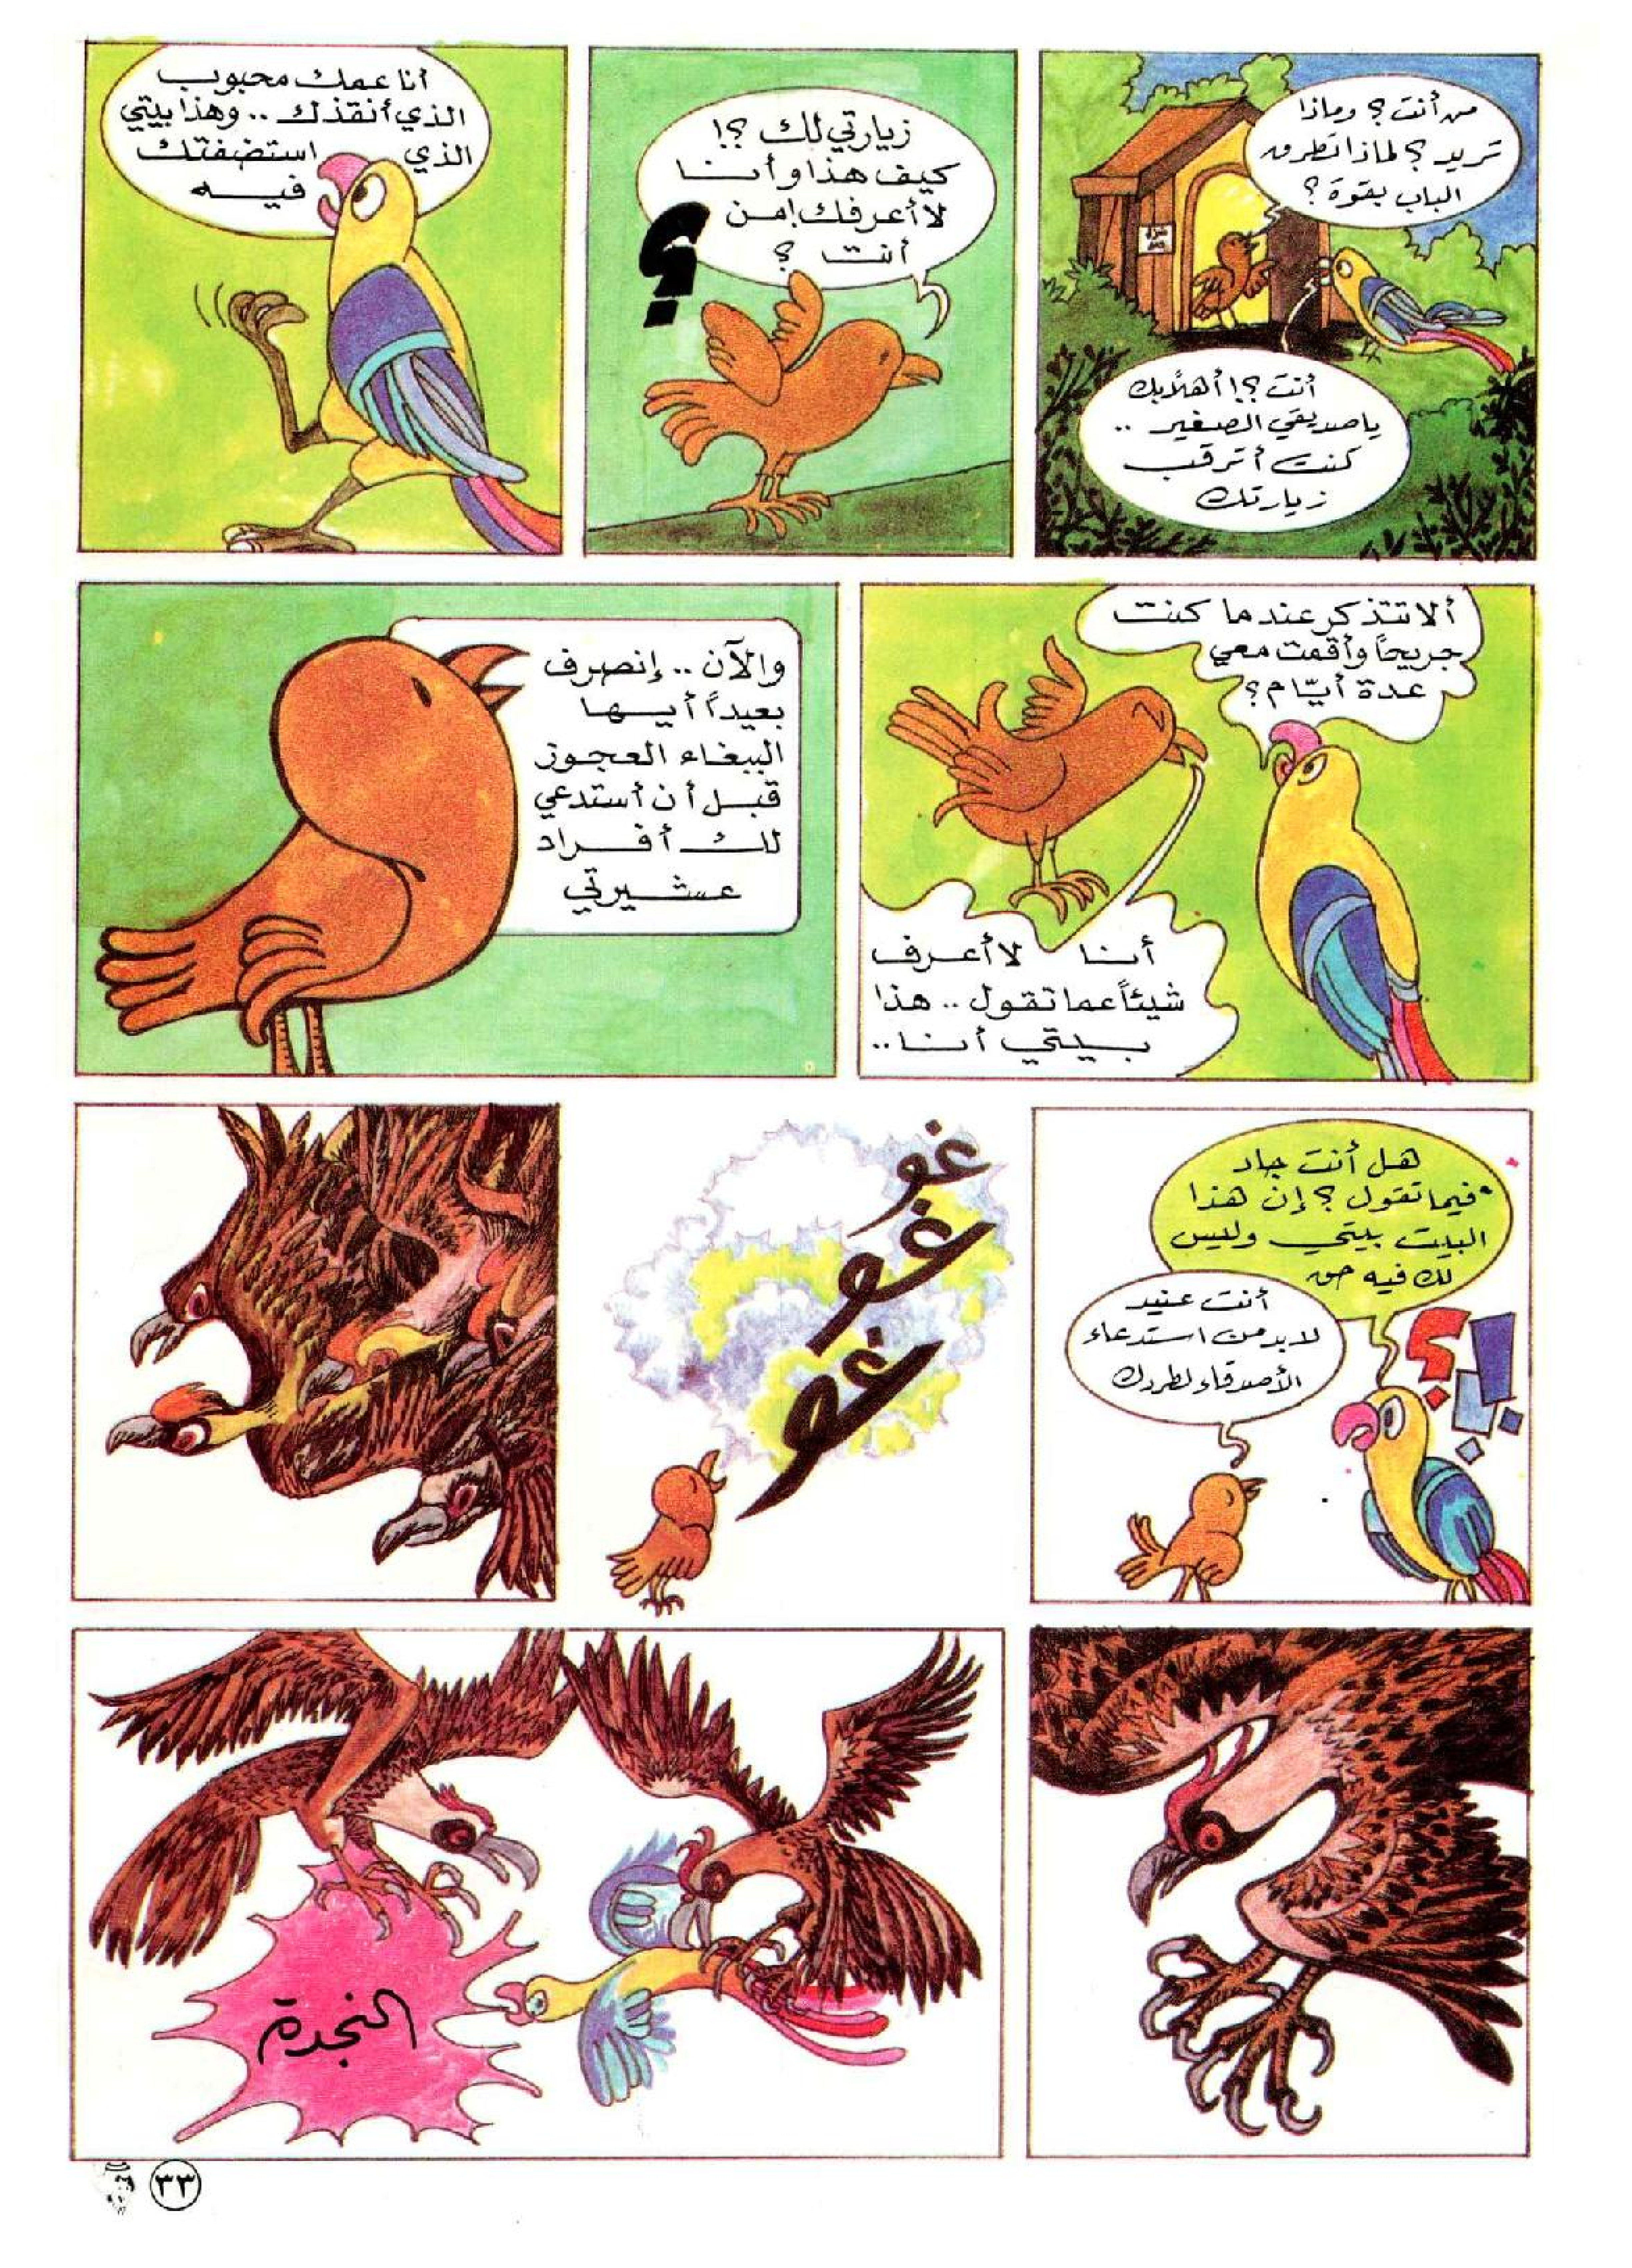 من أنت؟ وماذا
تريد؟ لماذا تطرق
الباب بقوة؟
أنت؟! أهلاً بك
يا صديقي الصغير ..
كنت أترقب
زيارتك
زيارتي لك؟!
كيف هذا وأنا
لا أعرفك! من
أنت؟
؟
أنا عمك محبوب
الذي أنقذك .. وهذا بيتي
الذي استضفتك
فيه
ألا تتذكر عندما كنت
جريحاً وأقمت معي
عدة أيّام؟
أنا لا أعرف
شيئاً عما تقول .. هذا
بيتي أنا ..
والآن .. إنصرف
بعيداً أيها
الببغاء العجوز
قبل أن أستدعي
لك أفراد
عشيرتي
هل أنت جاد
فيما تقول؟ إن هذا
البيت بيتي وليس
لك فيه حق
؟!
أنت عنيد
لا بد من استدعاء
الأصدقاء لطردك
غو
غو
غو
النجدة
٣٣